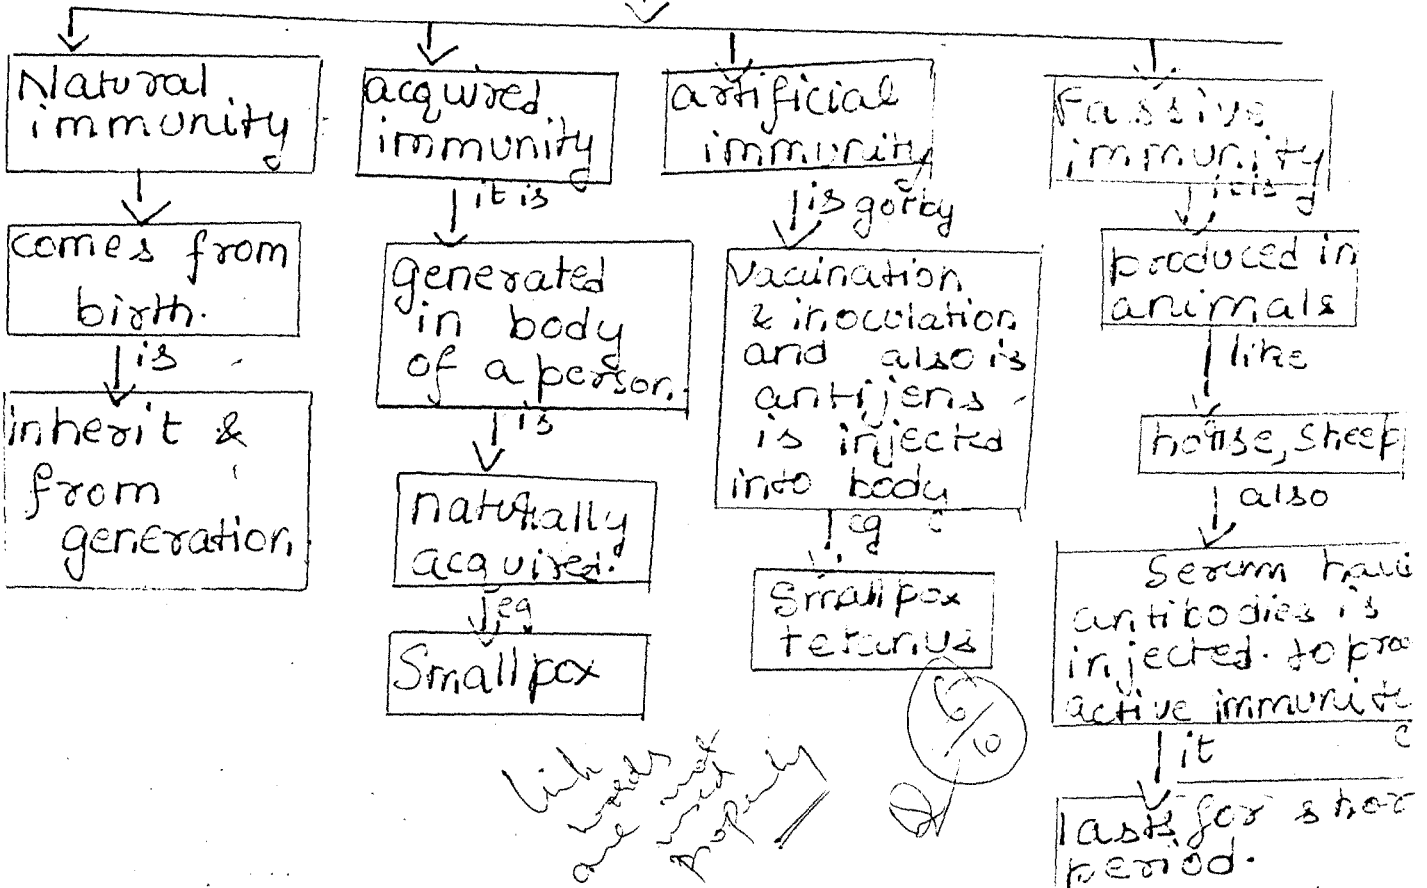 Natural
immunity
comes from
birth.
is
inherit &
from
generation
acquired
immunity
it is
generated
in body
of a person.
is
naturally
acquired.
eg
Small pox
artificial
immunity
is gotby
Vaccination
& inoculation
and also is
antijens
is injected
into body
eg
Small pox
tetanus
Passive
immunity
it is
produced in
animals
like
horse, sheep
also
Serum
antibodies is
injected. to
active
it
lasts for
period.
link
words
are not
used
properly
6/10